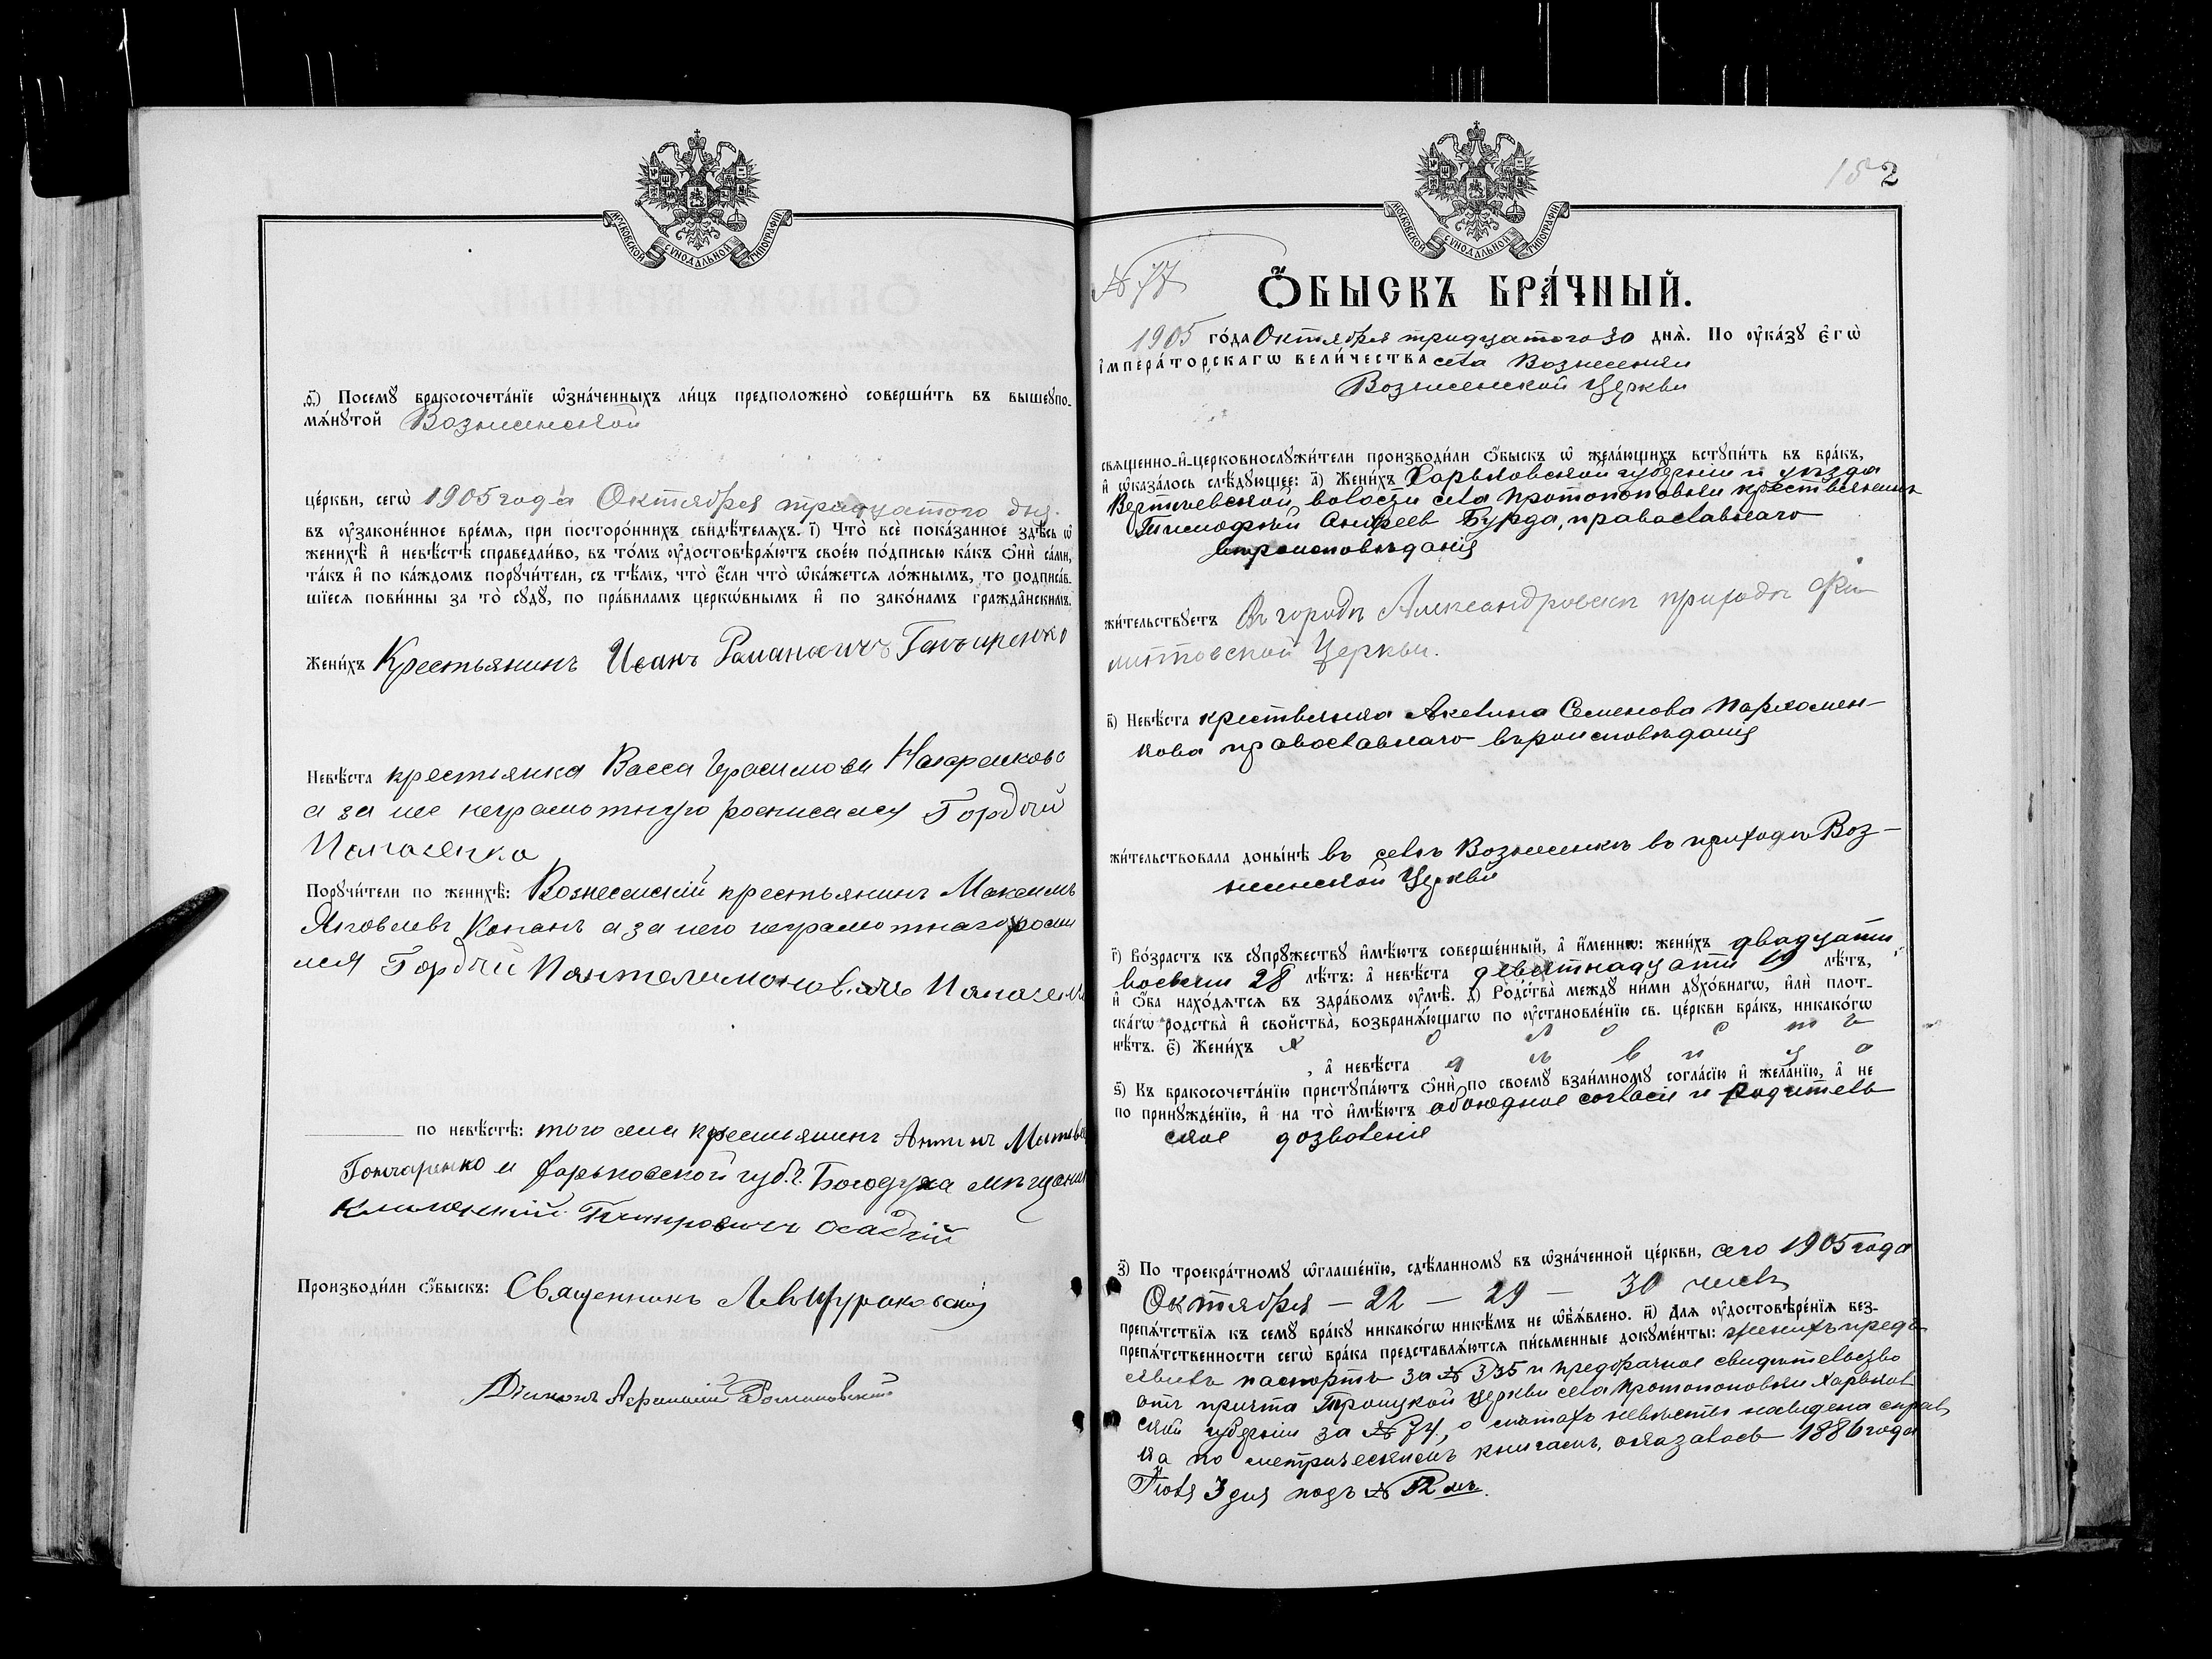 МОСКОВСКОЙ СѴНОДАЛЬНОЙ ТИПОГРАФІИ
ѳ҃) Посемꙋ̀ бракосочета́нїе ѡ҆зна́ченныхъ ли́цъ предположено̀ соверши́ть въ вышеꙋпо-
мѧ́нꙋтой Вознесенской
це́ркви, сегѡ̀ 1905 года Октября тридцатого дня.
въ ᲂу҆законе́нное вре́мѧ, при посторо́ннихъ свидѣ́телѧхъ. і҃) Что̀ всѐ пока́занное здѣ́сь ѡ҆
женихѣ̀ и҆ невѣ́стѣ справедли́во, въ то́мъ ᲂу҆достовѣрѧ́ютъ свое́ю по́дписью ка́къ ѻ҆нѝ са́ми,
та́къ и҆ по ка́ждомъ порꙋчи́тели, съ тѣ́мъ, что̀ є҆́сли что̀ ѡ҆ка́жетсѧ ло́жнымъ, то подписа́в-
шїесѧ пови́нны за то̀ сꙋдꙋ̀, по пра́виламъ церко́внымъ и҆ по зако́намъ гражда́нскимъ.
Жени́хъ Крестьянинъ Иванъ Романовичъ Гончаренко
Невѣ́ста крестьянка Васса Герасимова Назаренкова
а за нее неграмотную росписался Гордѣй
Порꙋчи́тели по женихѣ̀: Вознесенскій крестьянинъ Максимъ
Яковлевъ Копанъ а за него неграмотнаго роспи
лся Гордѣй Пантелимоновичъ
по невѣ́стѣ: того села крестьянинъ Антинъ
Гончаренко и Харьковской губ. г. Богодуха мѣщанин
Климентій Петровичъ Осадчій
Производи́ли ѻ҆́быскъ: Священникъ
Діаконъ Афанасій Романовскій
МОСКОВСКОЙ СѴНОДАЛЬНОЙ ТИПОГРАФІИ
152
№ 77
Ѻ҆́БЫСКЪ БРА́ЧНЫЙ.
1905 го́да Октября тридцатого 30 днѧ̀. По ᲂу҆ка́зꙋ Є҆гѡ̀
і҆мпера́торскагѡ вели́чества села Вознесенки
Вознесенской Церкви
свѧщенно-и҆-церковнослꙋжи́тели производи́ли ѻ҆́быскъ ѡ҆ жела́ющихъ встꙋпи́ть въ бра́къ,
и҆ ѡ҆каза́лось слѣ́дꙋющее: а҃) Жени́хъ Харьковской губерніи и уѣзда
Вертиевской волости села Протопоповки крестьянинъ
Тимофѣй Андреев Бурда, православнаго
вѣроисповѣданія
жи́тельствꙋетъ Въ городѣ Александровскѣ приходѣ Фи-
липповской Церкви.
в҃) Невѣ́ста крестьянка Акелина Семенова Пархомен-
кова православнаго вѣроисповѣданія
жи́тельствовала доны́нѣ въ селѣ Вознесенкѣ въ приходѣ Воз-
несенской Церкви
г҃) Во́зрастъ къ сꙋпрꙋ́жествꙋ и҆мѣ́ютъ соверше́нный, а҆ и҆́меннѡ: жени́хъ двадцати
восьми 28 лѣ́тъ: а҆ невѣ́ста девятнадцати 19 лѣ́тъ,
и҆ ѻ҆́ба нахо́дѧтсѧ въ здра́вомъ ᲂу҆мѣ̀. д҃) Ро́дства̀ междꙋ̀ ни́ми дꙋхо́внагѡ, и҆лѝ пло́т-
скагѡ родства̀ и҆ свойства̀, возбранѧ́ющагѡ по ᲂу҆становле́нїю св. це́ркви бра́къ, никако́гѡ
нѣ́тъ. є҃) Жени́хъ холостъ
, а҆ невѣ́ста дѣвица
ѕ҃) Къ бракосочета́нїю пристꙋпа́ютъ ѻ҆нѝ по своемꙋ̀ взаи́мномꙋ согла́сїю и҆ жела́нїю, а҆ не
по принꙋжде́нїю, и҆ на то̀ и҆мѣ́ютъ обоюдное согласіе и родитель
ское дозволеніе
з҃) По троекра́тномꙋ ѡ҆глаше́нїю, сдѣ́ланномꙋ въ ѡ҆зна́ченной це́ркви, сего 1905 года
Октября – 22 – 29 – 30 числъ
препѧ́тствїѧ къ семꙋ̀ бра́кꙋ никако́гѡ никѣ́мъ не ѡ҆б̾ѧ́влено. и҃) Длѧ ᲂу҆достовѣре́нїѧ без-
препѧ́тственности сегѡ̀ бра́ка представлѧ́ютсѧ пи́сьменные докꙋме́нты: женихъ предъ
явилъ паспортъ за № 335 и предбрачное свидѣтельство
отъ причта Троицкой Церкви села Протопоповки Харьков
ской губерніи за № 74, о лѣтахъ невѣсты наведена справ
ка по метрическимъ книгамъ, оказалось 1886 года
Іюля 3 дня подъ № 52 мъ.